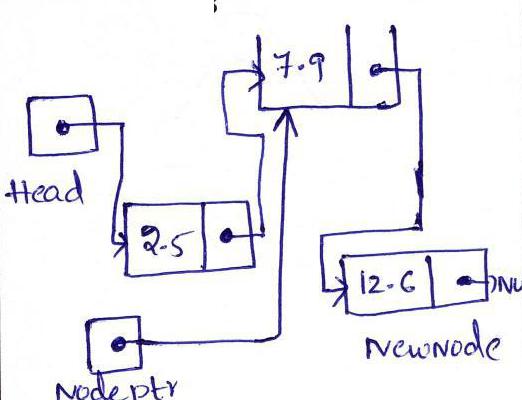 7.9
Head
2.5
12.6
NewNode
Nodeptr